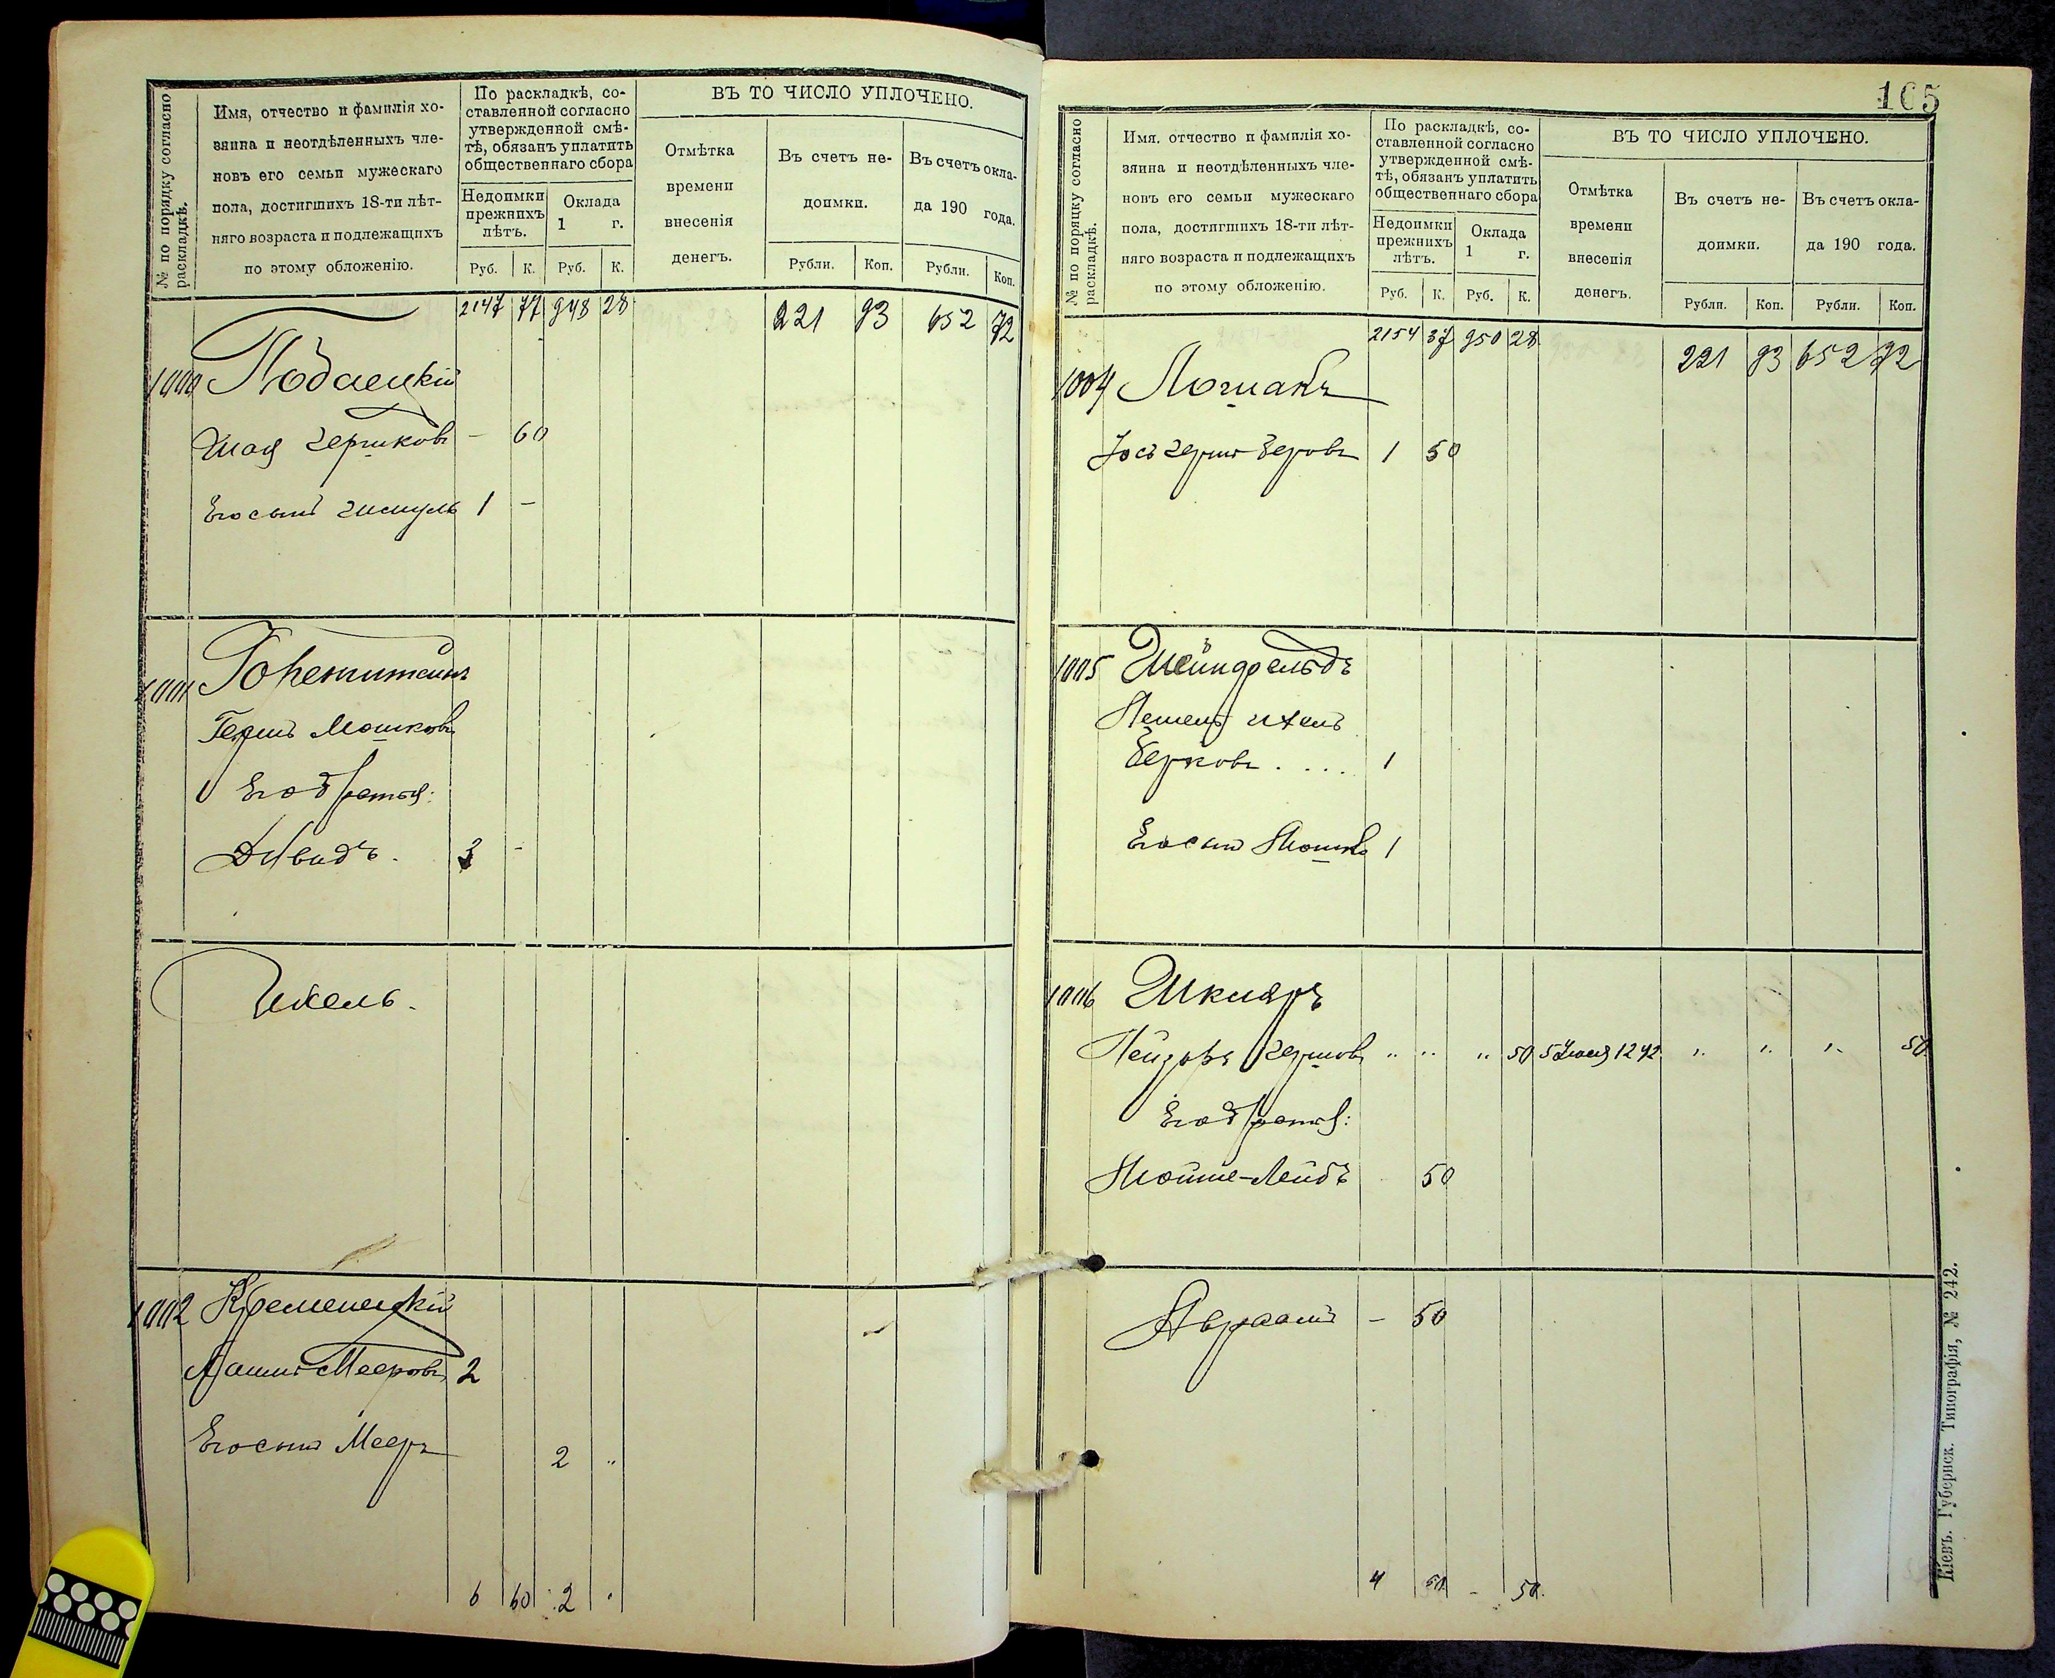 № по порядку согласно раскладкѣ.
Имя, отчество и фамилія хо-
зяина и неотдѣленныхъ чле-
новъ его семьи мужескаго
пола, достигшихъ 18-ти лѣт-
няго возраста и подлежащихъ
по этому обложенію.
По раскладкѣ, со-
ставленной согласно
утвержденной смѣ-
тѣ, обязанъ уплатить
общественнаго сбора
Недоимки
прежнихъ
лѣтъ.
Оклада
1 г.
Руб. К. Руб. К.
ВЪ ТО ЧИСЛО УПЛОЧЕНО.
Отмѣтка
времени
внесенія
денегъ.
Въ счетъ не-
доимки.
Въ счетъ окла-
да 190 года.
Рубли. Коп. Рубли. Коп.
2147 77 948 28 221 93 652 72
1000 Подаецкій
Шая Гершковъ - 60
Его сынъ Шмуль 1 -
1001
Гершъ Мошковъ
Его братья:
Давидъ. 3 -
Ихель.
1002 Кременецкій
Мееровъ 2
Его сынъ Мееръ 2 "
6 60 2 "
165
№ по порядку согласно раскладкѣ.
Имя, отчество и фамилія хо-
зяина и неотдѣленныхъ чле-
новъ его семьи мужескаго
пола, достигшихъ 18-ти лѣт-
няго возраста и подлежащихъ
по этому обложенію.
По раскладкѣ, со-
ставленной согласно
утвержденной смѣ-
тѣ, обязанъ уплатить
общественнаго сбора
Недоимки
прежнихъ
лѣтъ.
Оклада
1 г.
Руб. К. Руб. К.
ВЪ ТО ЧИСЛО УПЛОЧЕНО.
Отмѣтка
времени
внесенія
денегъ.
Въ счетъ не-
доимки.
Въ счетъ окла-
да 190 года.
Рубли. Коп. Рубли. Коп.
2154 37 950 28 221 93 652 72
1004 Лошакъ
Берковъ 1 50
1005 Шейнфельдъ
Ихель
Берковъ . . . . 1
Его сынъ Мошко 1
1006 Шкляръ
Лейзоръ Гершовъ " " " 50 5 1242 " " " 50
Его братья:
Мойше-Лейбъ 50
Авраамъ - 50
4 50 - 50.
Кіевъ. Губернск. Типографія, № 242.